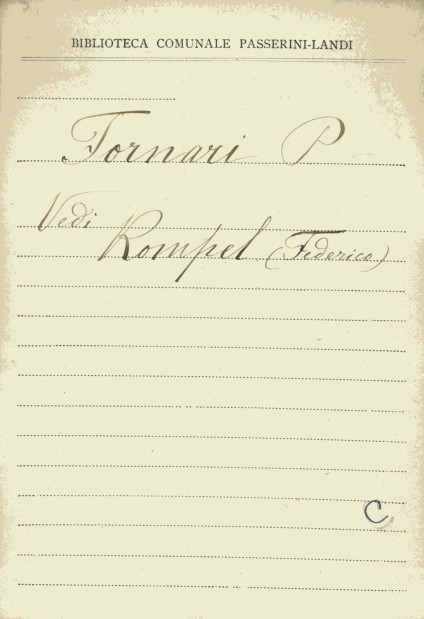 BIBLIOTECA COMUNALE PASSERINI-LANDI
Fornari P
Vedi
Rompel (Federico)
C